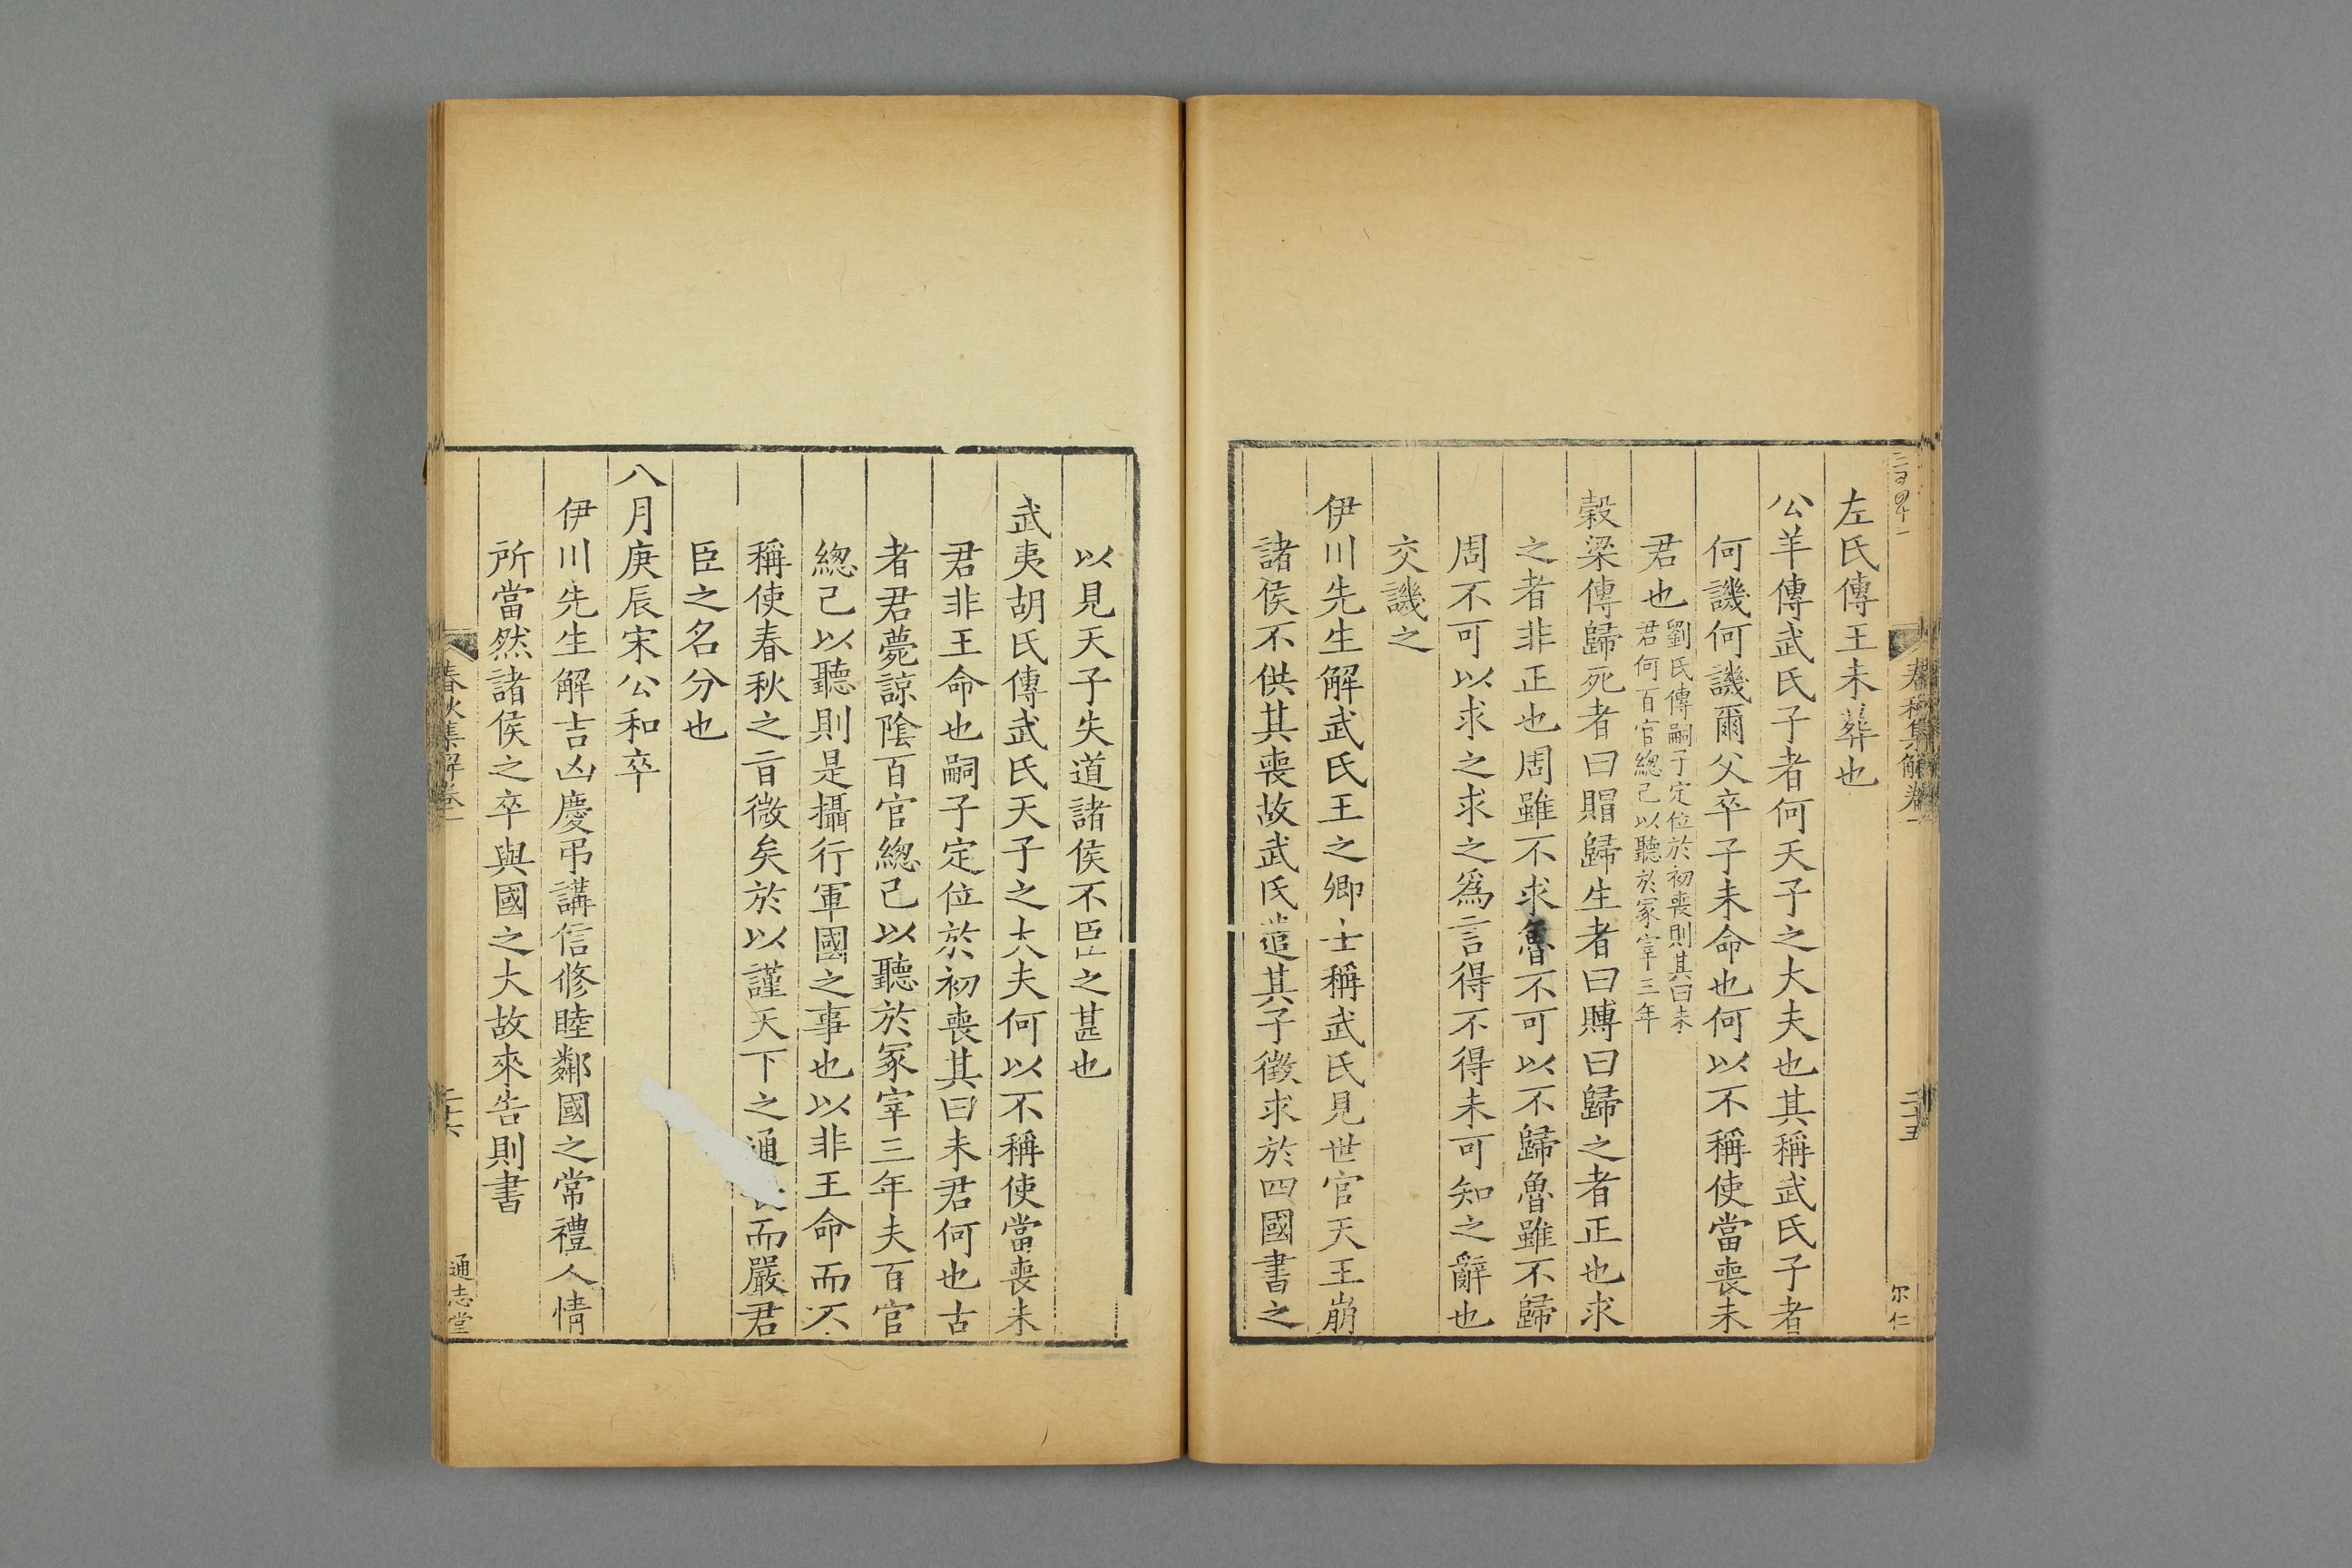 春秋集解卷一
二十五
尔仁
左氏傳王未葬也
公羊傳武氏子者何天子之大夫也其稱武氏子者
何譏何譏爾父卒子未命也何以不稱使當喪未
君也
劉氏傳嗣子定位於初喪則其曰未
君何百官總己以聽於冢宰三年
穀梁傳歸死者曰賵歸生者曰賻曰歸之者正也求
之者非正也周雖不求魯不可以不歸魯雖不歸
周不可以求之求之爲言得不得未可知之辭也
交譏之
伊川先生解武氏王之卿士稱武氏見世官天王崩
諸侯不供其喪故武氏遣其子徵求於四國書之
以見天子失道諸侯不臣之甚也
武夷胡氏傳武氏天子之大夫何以不稱使當喪未
君非王命也嗣子定位於初喪其曰未君何也古
者君薨諒陰百官總己以聽於冢宰三年夫百官
總己以聽則是攝行軍國之事也以非王命而不
稱使春秋之旨微矣於以謹天下之通而嚴君
臣之名分也
八月庚辰宋公和卒
伊川先生解吉凶慶弔講信修睦鄰國之常禮人情
所當然諸侯之卒與國之大故來告則書
春秋集解卷一
二十六
通志堂